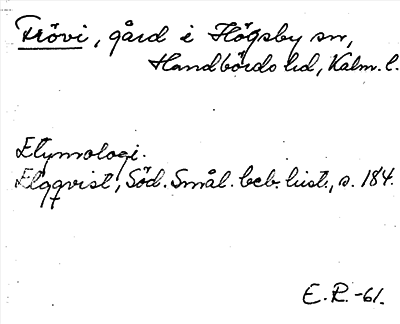 Frövi, gård i Högsby sn,
Handbörds hd, Kalm. l.
Etymologi.
Elgqvist, Söd. Smål. beb. hist., s. 184.
E. R. -61.